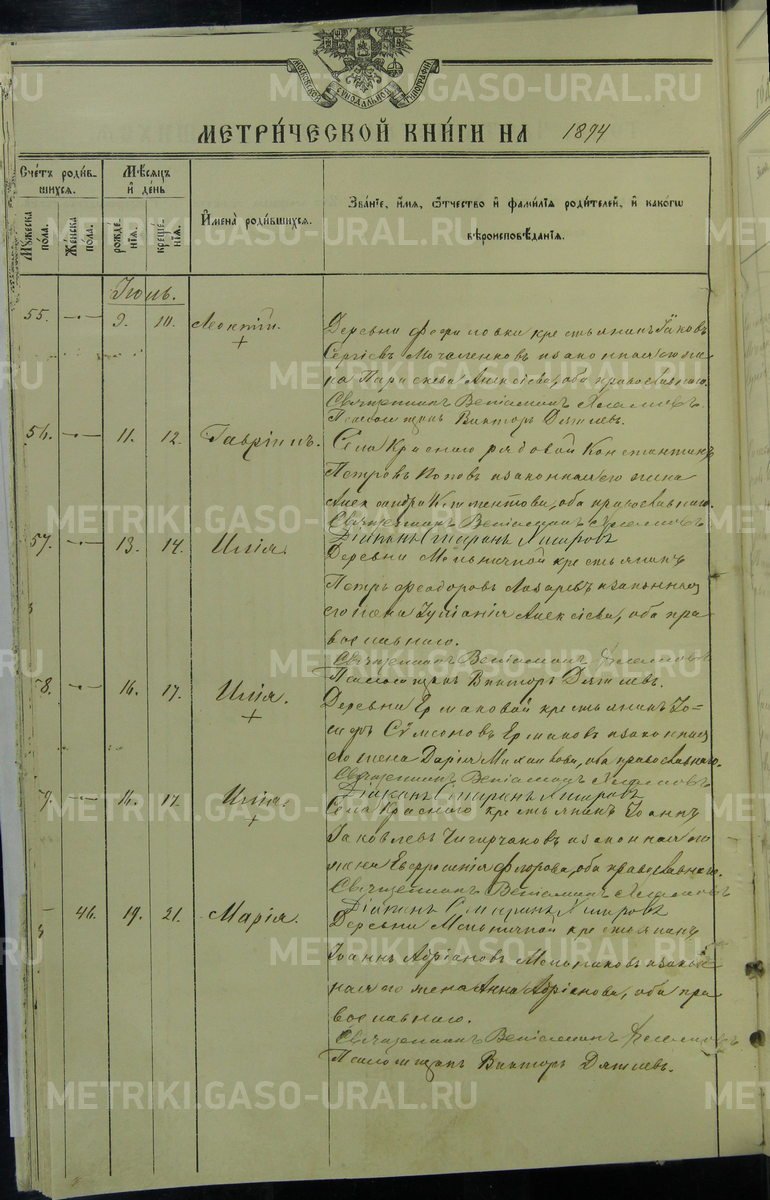 МОСКОВСКОЙ СѴНОДАЛЬНОЙ ТИПОГРАФІИ
МЕТРИ́ЧЕСКОЙ КНИ́ГИ НА 1894
Сче́тъ роди́в-
шихся.
Мꙋ́жеска по́ла.
Же́нска по́ла.
Мѣ́сяцъ и҆ де́нь
рожде́нїѧ.
креще́нїѧ.
И҆мена̀ роди́вшихся.
Зва́нїе, и҆́мѧ, ѻ҆́тчество и҆ фами́лїѧ роди́телей, и҆ како́гѡ
вѣроисповѣ́данїѧ.
Іюль.
55. — 9. 10. Леонтій.
Деревни крестьянинъ Іаковъ
Сергіевъ Мочаленковъ и законная его же-
на Параскева Алексіева, оба православнаго.
Священникъ Веніаминъ
Псаломщикъ Викторъ Дягилевъ.
56. — 11. 12. Гавріилъ.
Села Краснаго рядовой Константинъ
Петровъ Поповъ и законная его жена
Александра Климентова, оба православнаго.
Священникъ Веніаминъ
Діаконъ
57. — 13. 14. Илія.
Деревни Мельничной крестьянинъ
Петръ Феодоровъ Лазаревъ и законная
его жена Іуліанія Алексіева, оба пра-
вославнаго.
Священникъ Веніаминъ
Псаломщикъ Викторъ Дягилевъ.
8. — 16. 17. Илія.
Деревни Ермаковой крестьянинъ Іо-
сифъ Сѵмеоновъ Ермаковъ и законная
его жена Дарія Михаилова, оба православнаго.
Священникъ Веніаминъ
Діаконъ
9. — 16. 17. Илія.
Села Краснаго крестьянинъ Іоаннъ
Іаковлевъ Чигирчаковъ и законная его
жена Евфросинія Флорова, оба православнаго.
Священникъ Веніаминъ
Діаконъ
46. 19. 21. Марія.
Деревни Мельничной крестьянинъ
Іоаннъ Адріановъ Мельниковъ и закон-
ная его жена Анна Адріанова, оба пра-
вославнаго.
Священникъ Веніаминъ
Псаломщикъ Викторъ Дягилевъ.
METRIKI.GASO-URAL.RU